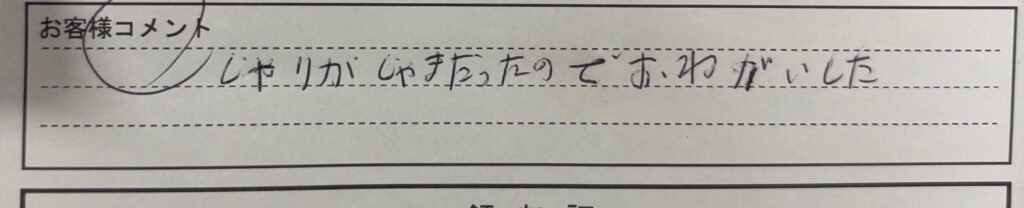 お客様コメント
じゃりがじゃまだったのでおねがいした